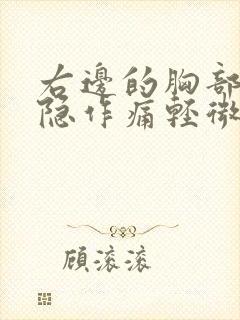 右邊的胸部
隐作痛輕微
顧滚滚